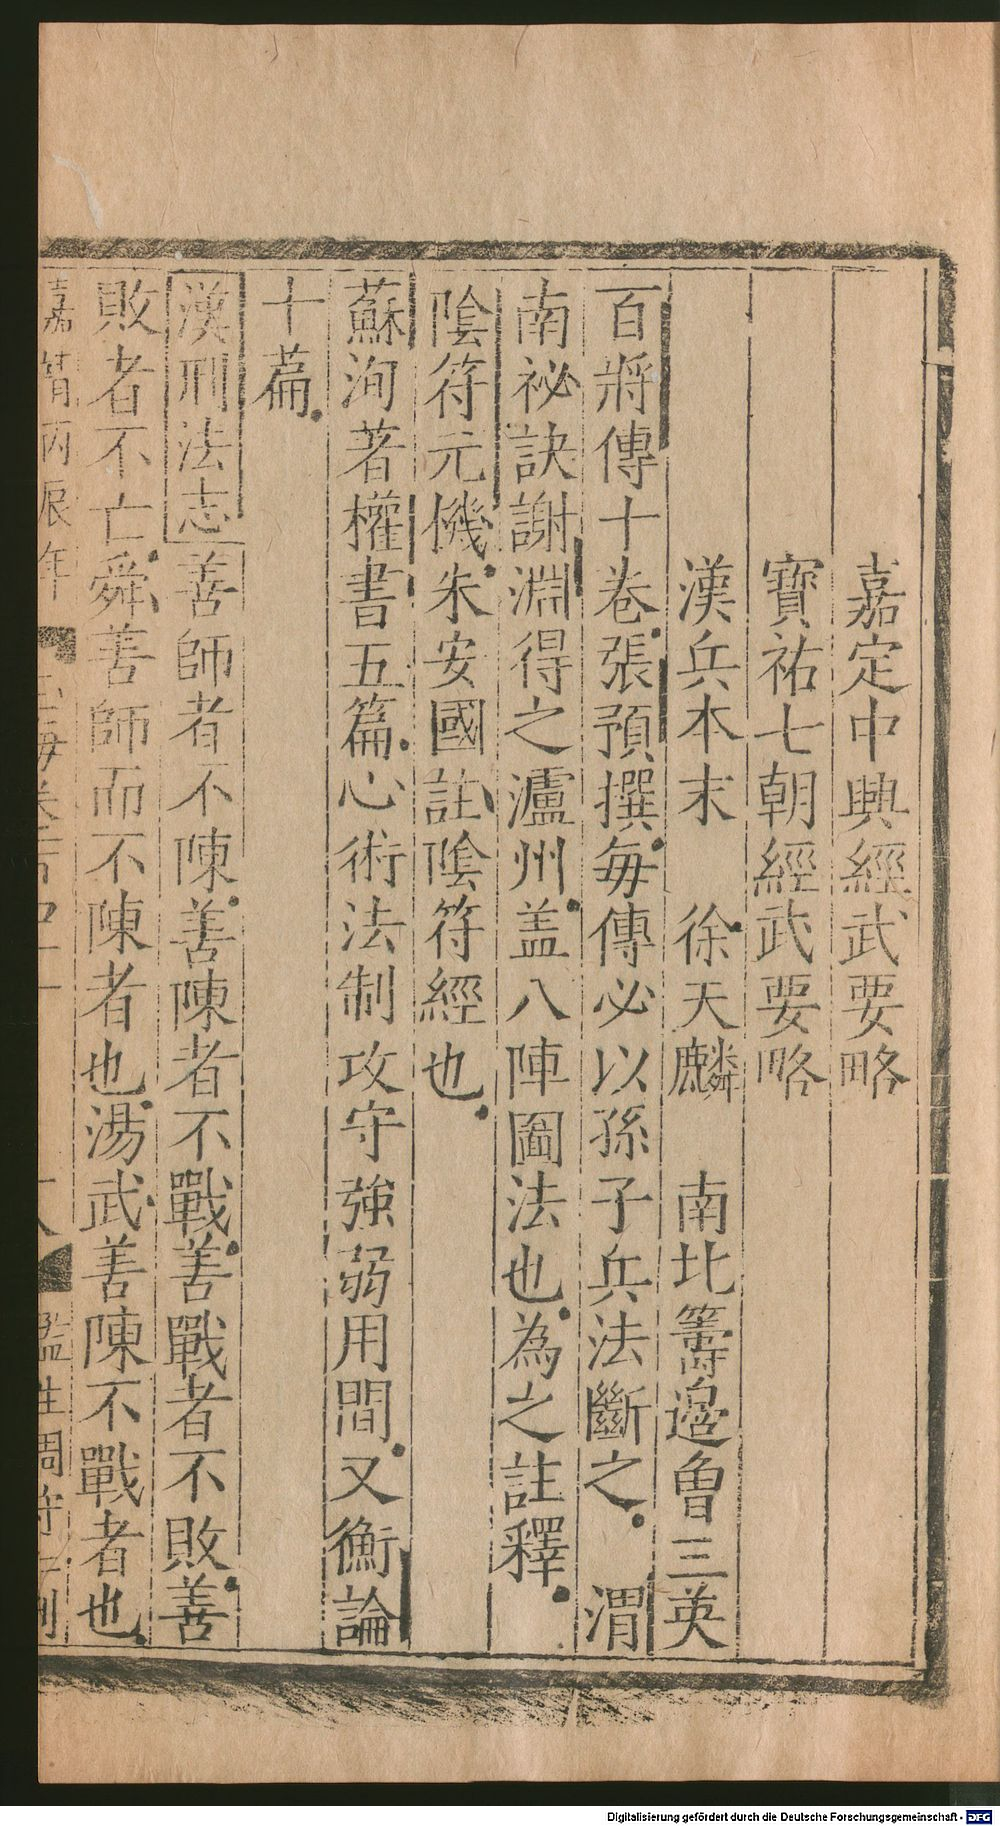 嘉定中興經武要略
寶祐七朝經武要略
漢兵本末　徐天麟　南北籌邊　魯三英
百將傳十卷張預撰每傳必以孫子兵法斷之　渭
南祕訣謝淵得之瀘州盖八陣圖法也為之註釋
陰符元機朱安國註陰符經也
蘇洵著權書五篇心術法制攻守強弱用間又衡論
十篇
漢刑法志善師者不陳善陳者不戰善戰者不敗善
敗者不亡舜善師而不陳者也湯武善陳不戰者也
嘉靖丙辰年　海卷　監生周守刊
Digitalisierung gefördert durch die Deutsche Forschungsgemeinschaft - DFG